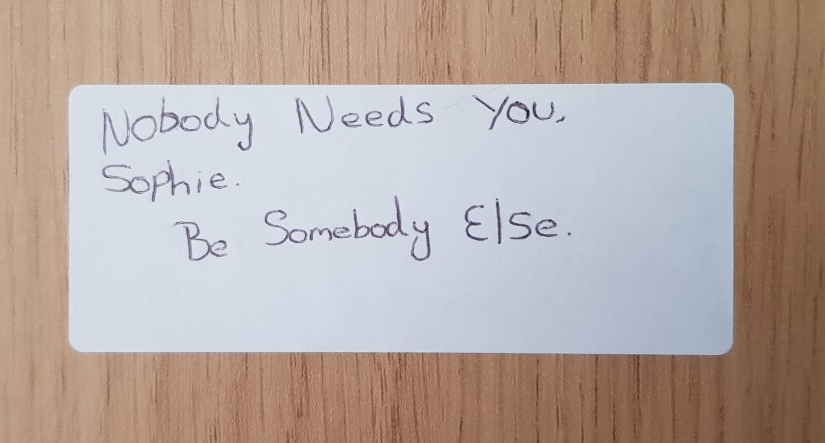 Nobody Needs You,
Sophie.
Be Somebody Else.